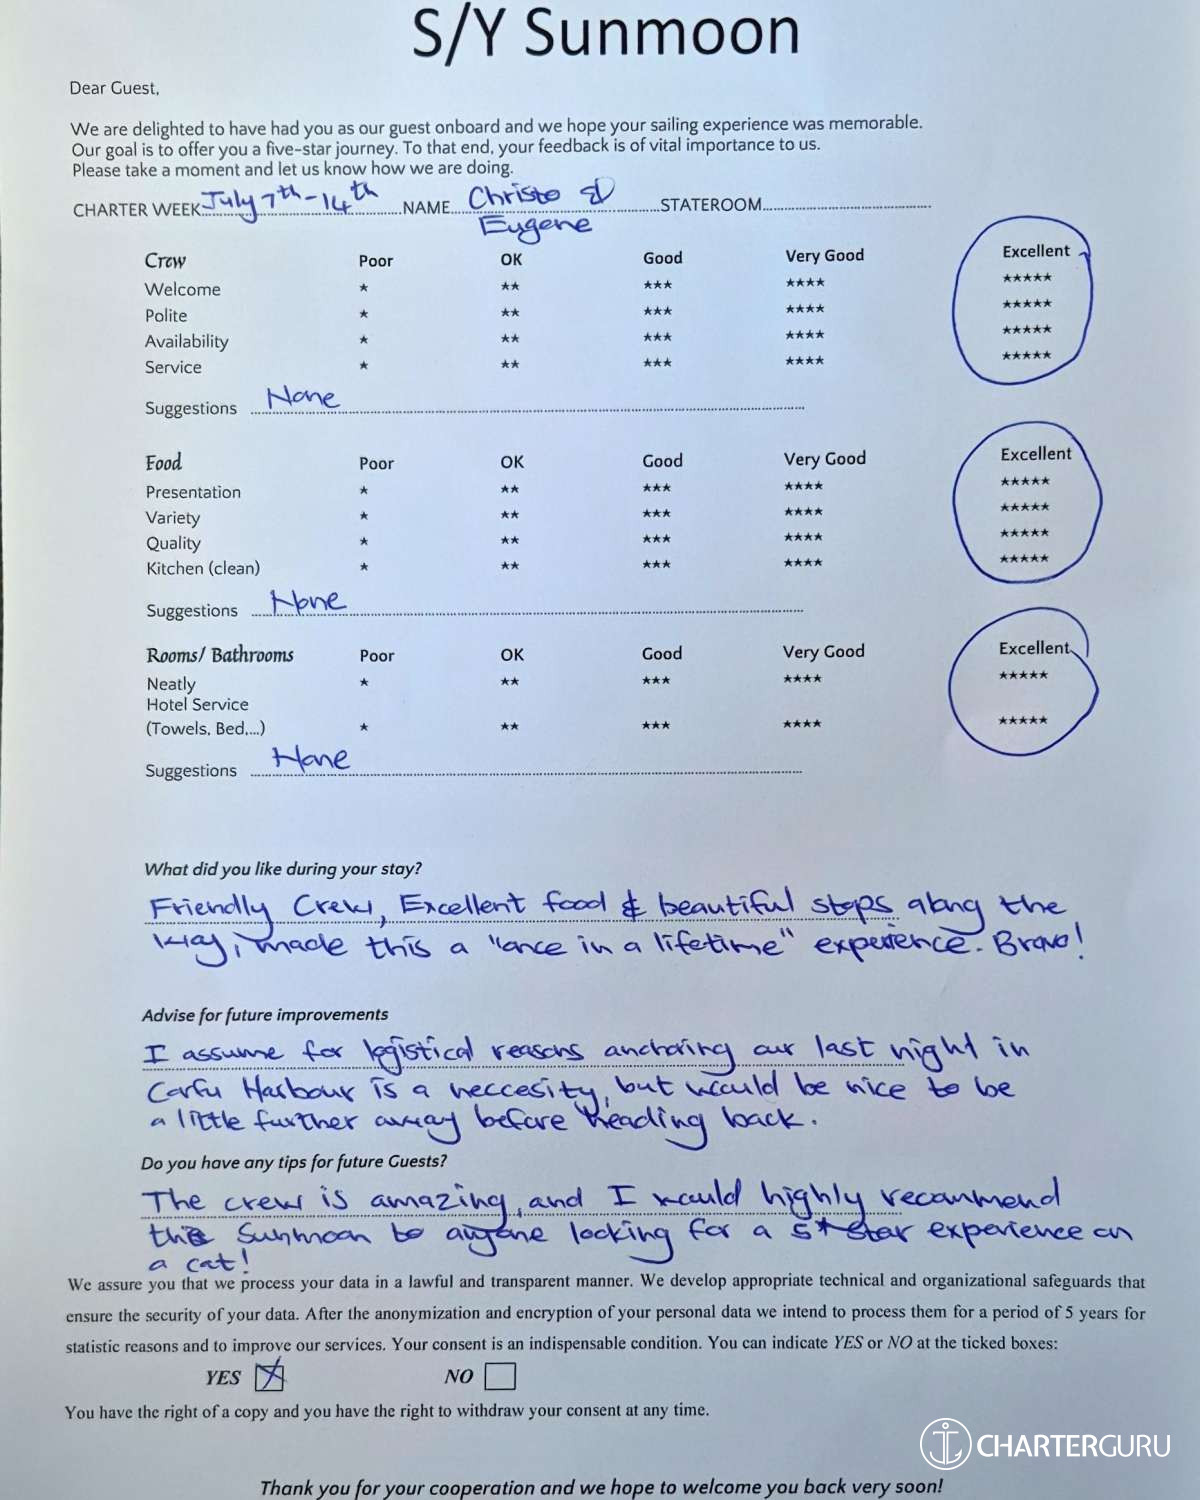 S/Y Sunmoon
Dear Guest,
We are delighted to have had you as our guest onboard and we hope your sailing experience was memorable.
Our goal is to offer you a five-star journey. To that end, your feedback is of vital importance to us.
Please take a moment and let us know how we are doing.
CHARTER WEEK July 7th - 14th NAME Christo & STATEROOM
Eugene
Crew Poor OK Good Very Good Excellent
Welcome ★ ★★ ★★★ ★★★★ ★★★★★
Polite ★ ★★ ★★★ ★★★★ ★★★★★
Availability ★ ★★ ★★★ ★★★★ ★★★★★
Service ★ ★★ ★★★ ★★★★ ★★★★★
Suggestions None
Food Poor OK Good Very Good Excellent
Presentation ★ ★★ ★★★ ★★★★ ★★★★★
Variety ★ ★★ ★★★ ★★★★ ★★★★★
Quality ★ ★★ ★★★ ★★★★ ★★★★★
Kitchen (clean) ★ ★★ ★★★ ★★★★ ★★★★★
Suggestions None
Rooms/ Bathrooms Poor OK Good Very Good Excellent
Neatly ★ ★★ ★★★ ★★★★ ★★★★★
Hotel Service
(Towels, Bed,...) ★ ★★ ★★★ ★★★★ ★★★★★
Suggestions None
What did you like during your stay?
Friendly Crew, Excellent food & beautiful stops along the
way, made this a "once in a lifetime" experience. Bravo!
Advise for future improvements
I assume for logistical reasons anchoring our last night in
Corfu Harbour is a neccesity, but would be nice to be
a little further away before heading back.
Do you have any tips for future Guests?
The crew is amazing, and I would highly recommend
the Sunmoon to anyone looking for a 5* star experience on
a cat!
We assure you that we process your data in a lawful and transparent manner. We develop appropriate technical and organizational safeguards that
ensure the security of your data. After the anonymization and encryption of your personal data we intend to process them for a period of 5 years for
statistic reasons and to improve our services. Your consent is an indispensable condition. You can indicate YES or NO at the ticked boxes:
YES NO
You have the right of a copy and you have the right to withdraw your consent at any time.
CHARTERGURU
Thank you for your cooperation and we hope to welcome you back very soon!